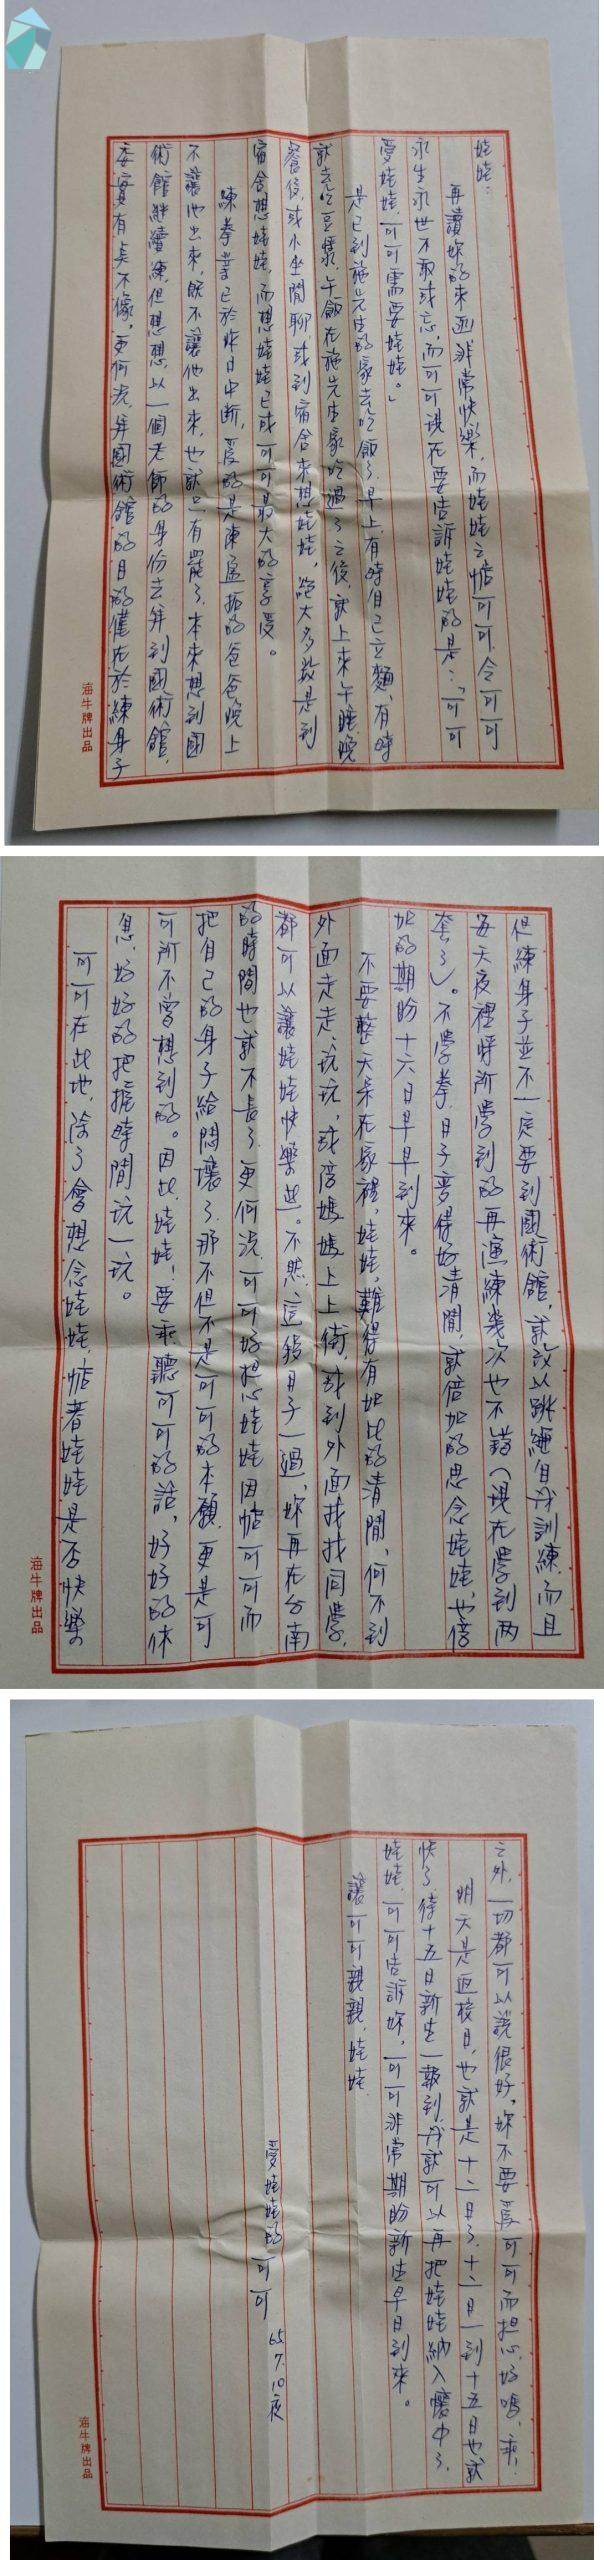 娃娃：
再讀妳的來函非常快樂，而娃娃之惦可可，令可可
永生永世不敢或忘，而可可現在要告訴娃娃的是：「可可
愛娃娃，可可需要娃娃。」
是已到施先生的家去吃飯了，早上有時自己立麵，有時
就去吃豆漿，午飯在施先生家吃過了之後，就上來午睡，晚
餐後，或小坐閒聊，或到宿舍來想娃娃，絕大多數是到
宿舍想娃娃，而想娃娃已成可可最大的享受。
練拳業已於昨日中斷，為的是陳孟 的爸爸晚上
不讓他出來，既不讓他出來，也就只有罷了，本來想到國
術館繼續練，但想想，以一個老師的身份去 到國術館，
委實有失不像，更何況， 國術館的目的僅在於練身子
海牛牌出品
但練身子並不一定要到國術館，就改以跳繩自我訓練，而且
每天夜裡將所學到的再演練幾次也不錯（現在學到兩
套了）。不學拳，日子變得好清閒，就倍加的思念娃娃，也倍
加的期盼十六日早早到來。
不要整天呆在家裡，娃娃，難得有如此的清閒，何不到
外面走走、玩玩，或陪媽媽上上街，或到外面找找同學，
都可以讓娃娃快樂些。不然，這段日子一過，妳再在台南
的時間也就不長了，更何況，可可好担心娃娃因惦可可而
把自己的身子給悶壞了，那不但不是可可的本願，更是可
可所不曾想到的。因此，娃娃！要乖聽可可的話，好好的休
息，好好的把握時間玩一玩。
可可在此地，除了會想念娃娃，惦著娃娃是否快樂
海牛牌出品
之外，一切都可以說很好，妳不要為可可而担心，好嗎，乖，
明天是返校日，也就是十二日了，十二日一到十五日也就
快了，待十五日新生一報到，我就可以再把娃娃納入懷中了，
娃娃，可可告訴妳，可可非常期盼新生早日到來。
讓可可親親，娃娃
愛娃娃的 可可
65.7.10夜
海牛牌出品